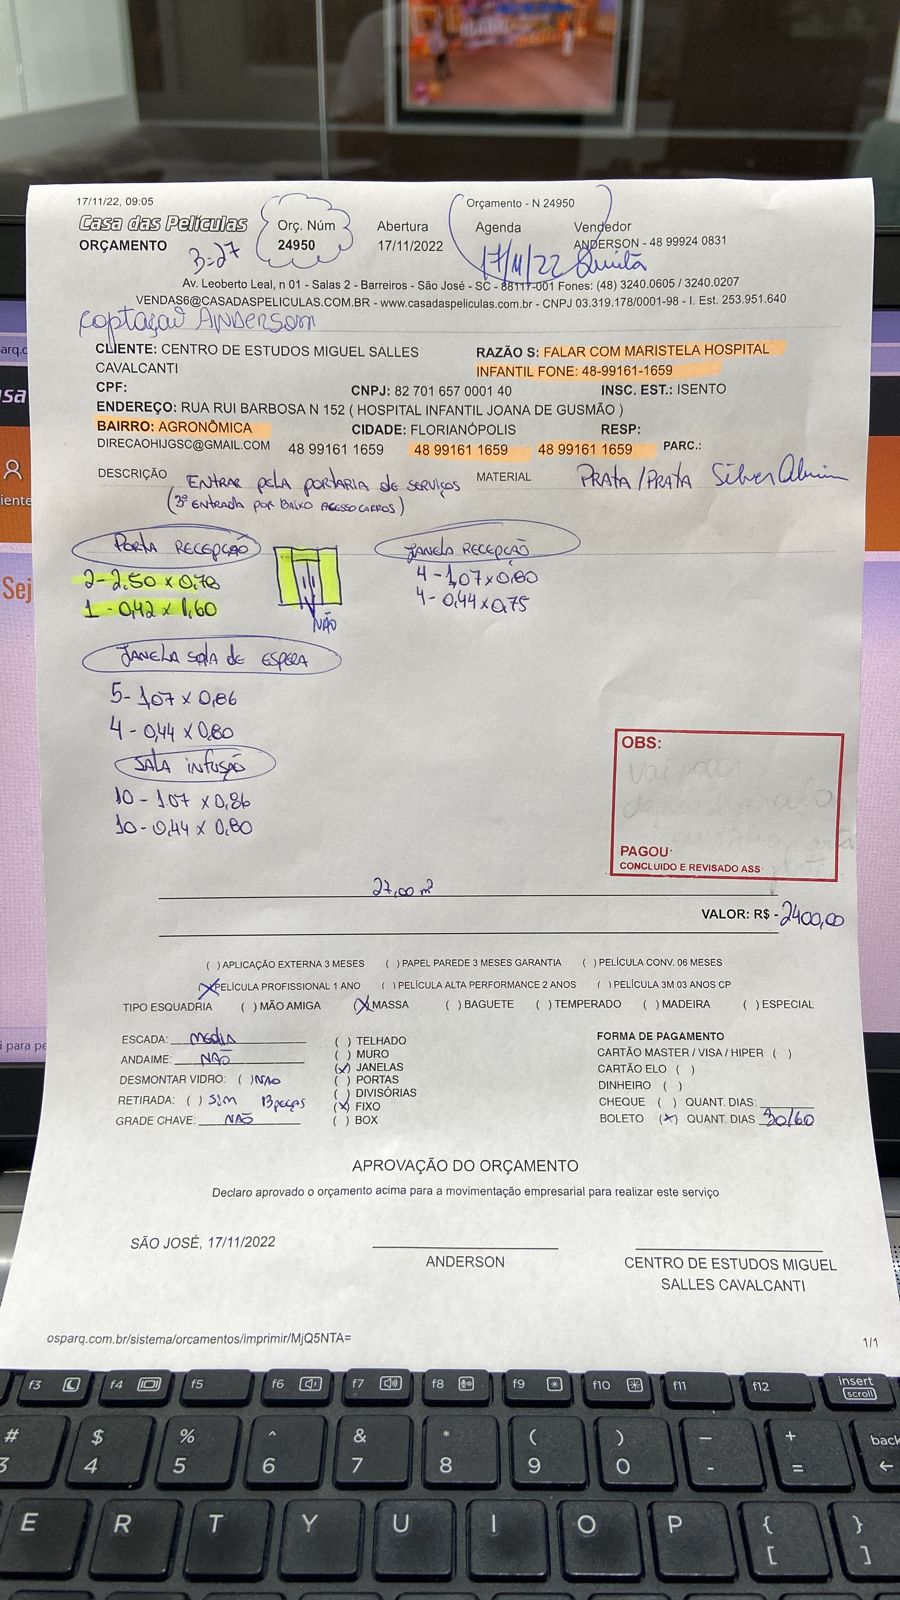 17/11/22, 09:05
Orçamento - N 24950
Casa das Películas
Orç. Núm
Abertura
Agenda
Vendedor
ORÇAMENTO
24950
17/11/2022
ANDERSON - 48 99924 0831
3=27
17/11/22 Quinta
Av. Leoberto Leal, n 01 - Salas 2 - Barreiros - São José - SC - 88117-001 Fones: (48) 3240.0605 / 3240.0207
VENDAS6@CASADASPELICULAS.COM.BR - www.casadaspeliculas.com.br - CNPJ 03.319.178/0001-98 - I. Est. 253.951.640
Captação Anderson
CLIENTE: CENTRO DE ESTUDOS MIGUEL SALLES
CAVALCANTI
RAZÃO S: FALAR COM MARISTELA HOSPITAL
INFANTIL FONE: 48-99161-1659
CPF:
CNPJ: 82 701 657 0001 40
INSC. EST.: ISENTO
ENDEREÇO: RUA RUI BARBOSA N 152 ( HOSPITAL INFANTIL JOANA DE GUSMÃO )
BAIRRO: AGRONÔMICA
CIDADE: FLORIANÓPOLIS
RESP:
DIRECAOHIJGSC@GMAIL.COM
48 99161 1659
48 99161 1659
48 99161 1659
PARC.:
DESCRIÇÃO
ENTRAR pela portaria de serviços
MATERIAL
PRATA/PRATA Silver
(3º ENTRADA POR BAIXO ACESSO CARROS)
PORTA RECEPÇÃO
2 - 2,50 x 0,78
1 - 0,42 x 1,60
NÃO
JANELA RECEPÇÃO
4 - 1,07 x 0,80
4 - 0,44 x 0,75
JANELA SALA DE ESPERA
5 - 1,07 x 0,86
4 - 0,44 x 0,80
SALA INFUSÃO
10 - 1,07 x 0,86
10 - 0,44 x 0,80
OBS:
PAGOU:
CONCLUIDO E REVISADO ASS:
27,00 m²
VALOR: R$ - 2400,00
( ) APLICAÇÃO EXTERNA 3 MESES ( ) PAPEL PAREDE 3 MESES GARANTIA ( ) PELÍCULA CONV. 06 MESES
(X) PELÍCULA PROFISSIONAL 1 ANO ( ) PELÍCULA ALTA PERFORMANCE 2 ANOS ( ) PELÍCULA 3M 03 ANOS CP
TIPO ESQUADRIA ( ) MÃO AMIGA (X) MASSA ( ) BAGUETE ( ) TEMPERADO ( ) MADEIRA ( ) ESPECIAL
ESCADA: Media
ANDAIME: NÃO
DESMONTAR VIDRO: ( ) NÃO
RETIRADA: ( ) SIM 13 peças
GRADE CHAVE: NÃO
( ) TELHADO
( ) MURO
(x) JANELAS
( ) PORTAS
( ) DIVISÓRIAS
(x) FIXO
( ) BOX
FORMA DE PAGAMENTO
CARTÃO MASTER / VISA / HIPER ( )
CARTÃO ELO ( )
DINHEIRO ( )
CHEQUE ( ) QUANT. DIAS:
BOLETO (x) QUANT. DIAS 30/60
APROVAÇÃO DO ORÇAMENTO
Declaro aprovado o orçamento acima para a movimentação empresarial para realizar este serviço
SÃO JOSÉ, 17/11/2022
ANDERSON
CENTRO DE ESTUDOS MIGUEL
SALLES CAVALCANTI
osparq.com.br/sistema/orcamentos/imprimir/MjQ5NTA=
1/1
f3 f4 f5 f6 f7 f8 f9 f10 f11 f12 insert
scroll
# $ % ^ & * ( ) _ + back
3 4 5 6 7 8 9 0 - =
E R T Y U I O P { }
[ ]